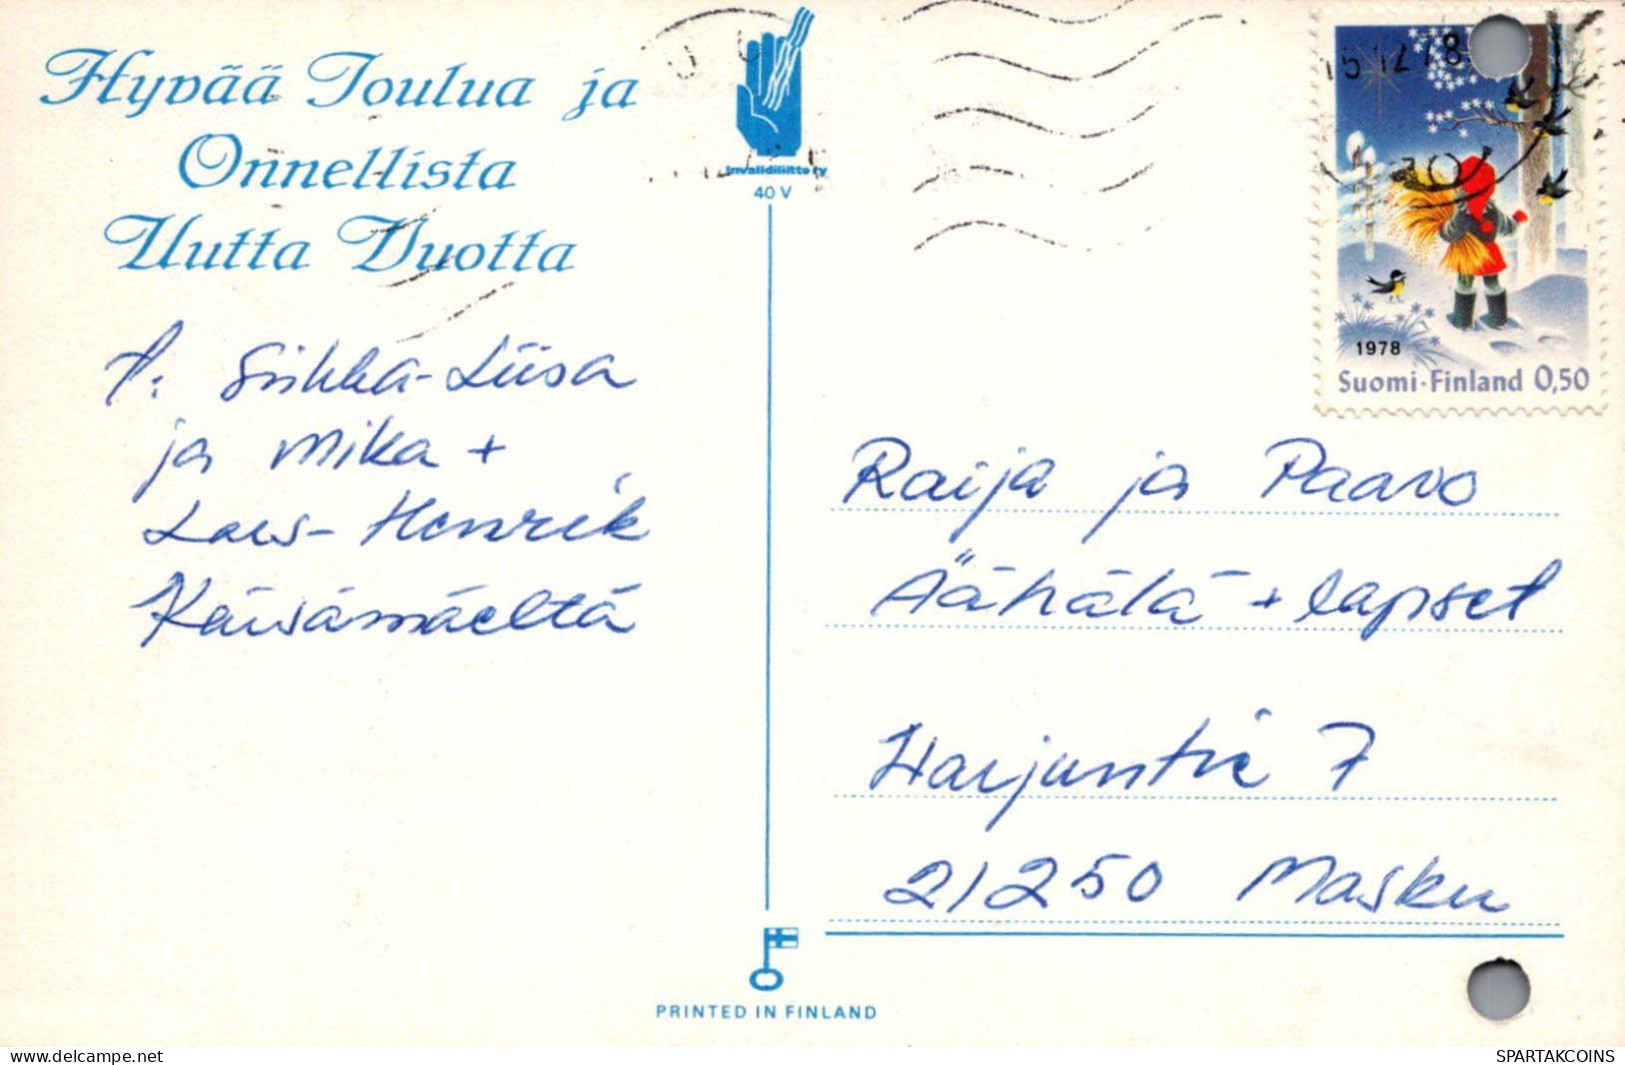 Hyvää Joulua ja
Onnellista
Uutta Vuotta
T: Sirkka-Liisa
ja Mika +
Lars-Henrik
Käisämäeltä
Invalidiliitto ry
40 V
1978
Suomi·Finland 0,50
Raija ja Paavo
Äähälä + lapset
Harjuntie 7
21250 Masku
PRINTED IN FINLAND
delcampe.net
SPARTAKCOINS